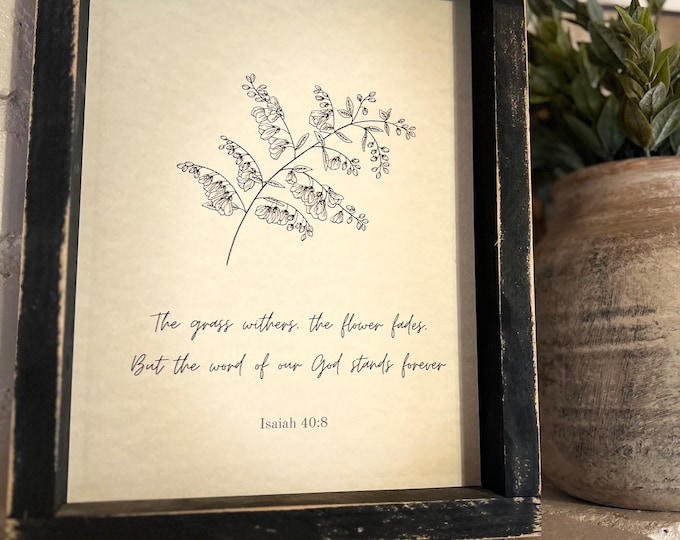 The grass withers, the flower fades,
But the word of our God stands forever
Isaiah 40:8